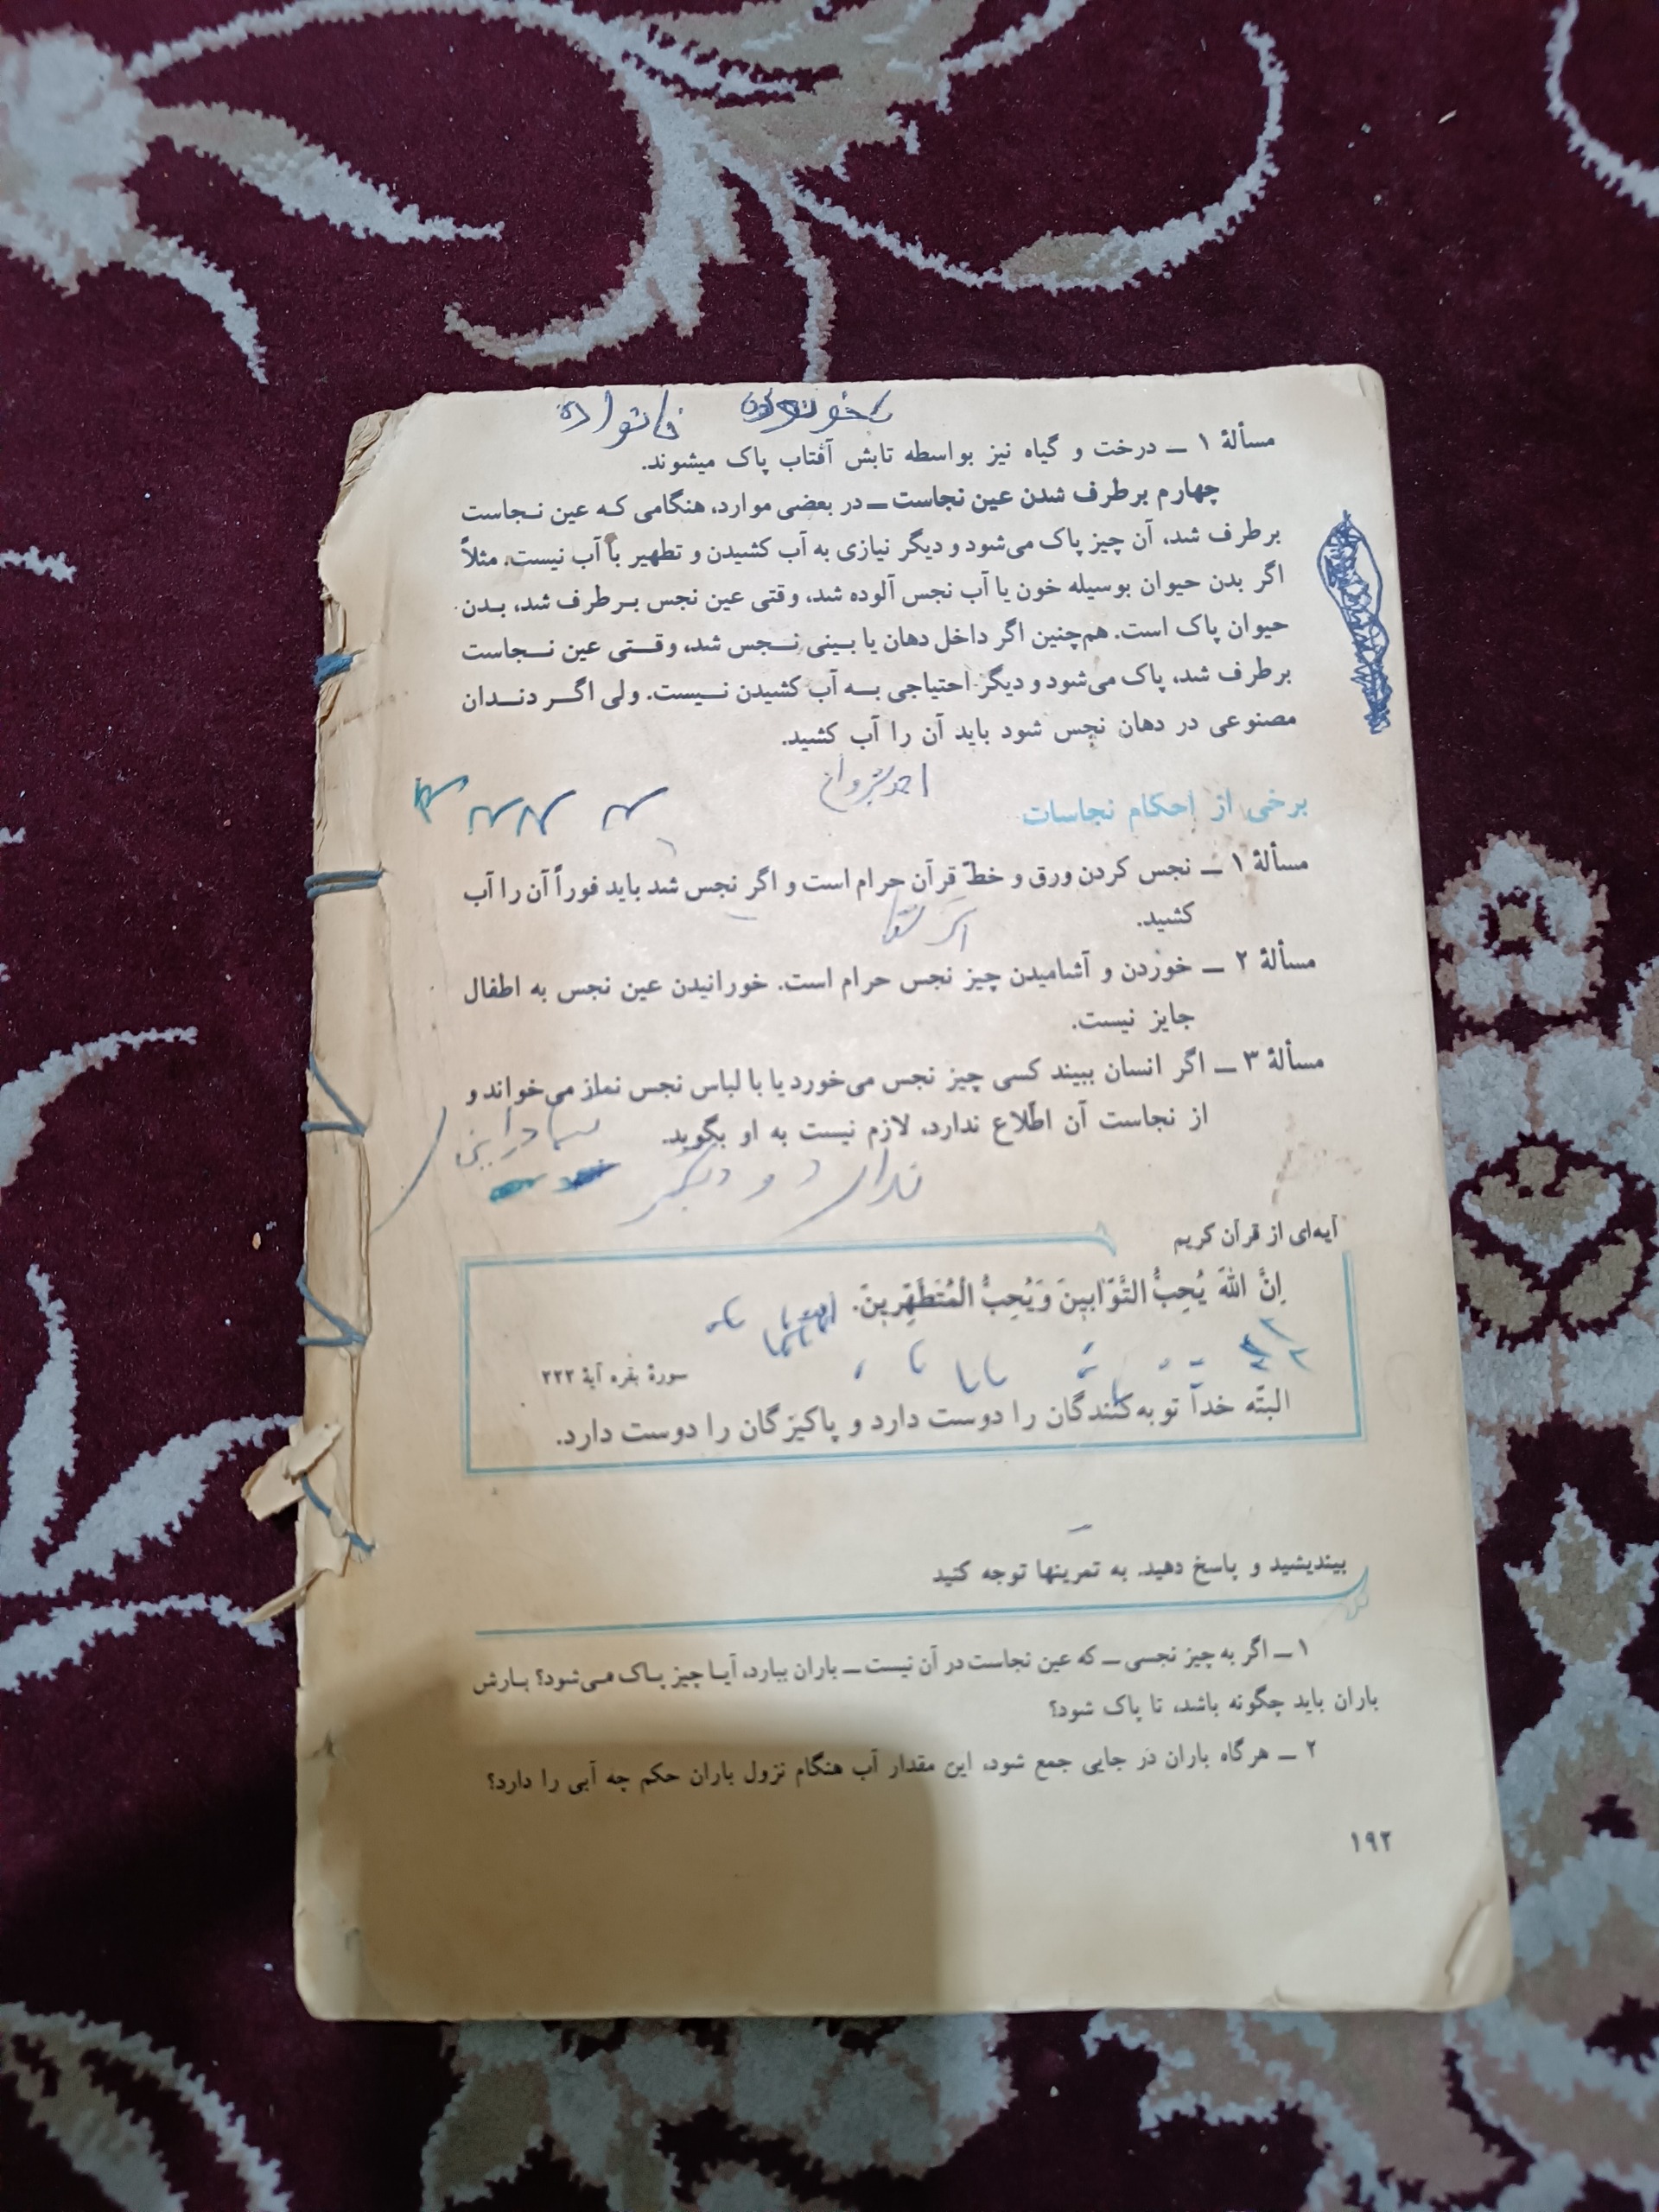 خانواده
مسألهٔ ۱ ــ درخت و گیاه نیز بواسطه تابش آفتاب پاک میشوند.
چهارم برطرف شدن عین نجاست ــ در بعضی موارد، هنگامی که عین نجاست
برطرف شد، آن چیز پاک می‌شود و دیگر نیازی به آب کشیدن و تطهیر با آب نیست. مثلاً
اگر بدن حیوان بوسیله خون یا آب نجس آلوده شد، وقتی عین نجس برطرف شد، بدن
حیوان پاک است. هم‌چنین اگر داخل دهان یا بینی نجس شد، وقتی عین نجاست
برطرف شد، پاک می‌شود و دیگر احتیاجی به آب کشیدن نیست. ولی اگر دندان
مصنوعی در دهان نجس شود باید آن را آب کشید.
برخی از احکام نجاسات
مسألهٔ ۱ ــ نجس کردن ورق و خطّ قرآن حرام است و اگر نجس شد باید فوراً آن را آب
کشید.
مسألهٔ ۲ ــ خوردن و آشامیدن چیز نجس حرام است. خورانیدن عین نجس به اطفال
جایز نیست.
مسألهٔ ۳ ــ اگر انسان ببیند کسی چیز نجس می‌خورد یا با لباس نجس نماز می‌خواند و
از نجاست آن اطّلاع ندارد، لازم نیست به او بگوید.
آیه‌ای از قرآن کریم
اِنَّ اللّٰهَ يُحِبُّ التَّوّابينَ وَيُحِبُّ الْمُتَطَهِّرينَ.
سورهٔ بقره آیهٔ ۲۲۲
البتّه خدا توبه‌کنندگان را دوست دارد و پاکیزگان را دوست دارد.
بیندیشید و پاسخ دهید. به تمرینها توجه کنید
۱ ــ اگر به چیز نجسی ــ که عین نجاست در آن نیست ــ باران ببارد، آیا چیز پاک می‌شود؟ بارش
باران باید چگونه باشد، تا پاک شود؟
۲ ــ هرگاه باران در جایی جمع شود، این مقدار آب هنگام نزول باران حکم چه آبی را دارد؟
۱۹۲